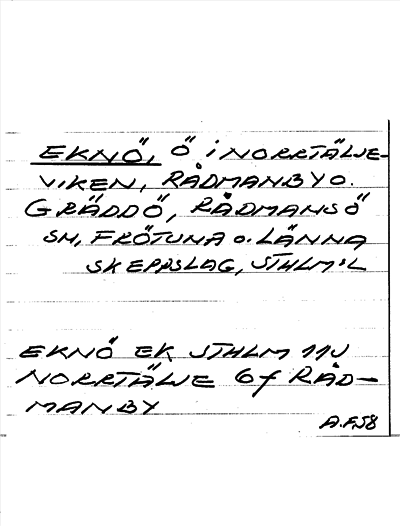 EKNÖ, Ö i NORRTÄLJE-
VIKEN, RÅDMANBY O.
GRÄDDÖ, RÅDMANSÖ
SN, FRÖTUNA O. LÄNNA
SKEPPSLAG, STHLM:L
EKNÖ EK STHLM 11J
NORRTÄLJE 6f RÅD-
MANBY
A.F.58